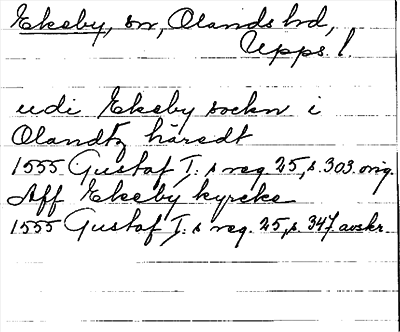 Ekeby, sn, Olands hd,
Upps. l.
udi Ekeby sockn i
Olandtz häredt
1555 Gustaf I:s reg. 25, s. 303. orig.
Aff Ekeby kyrcke
1555 Gustaf I:s reg. 25, s. 347. avskr.